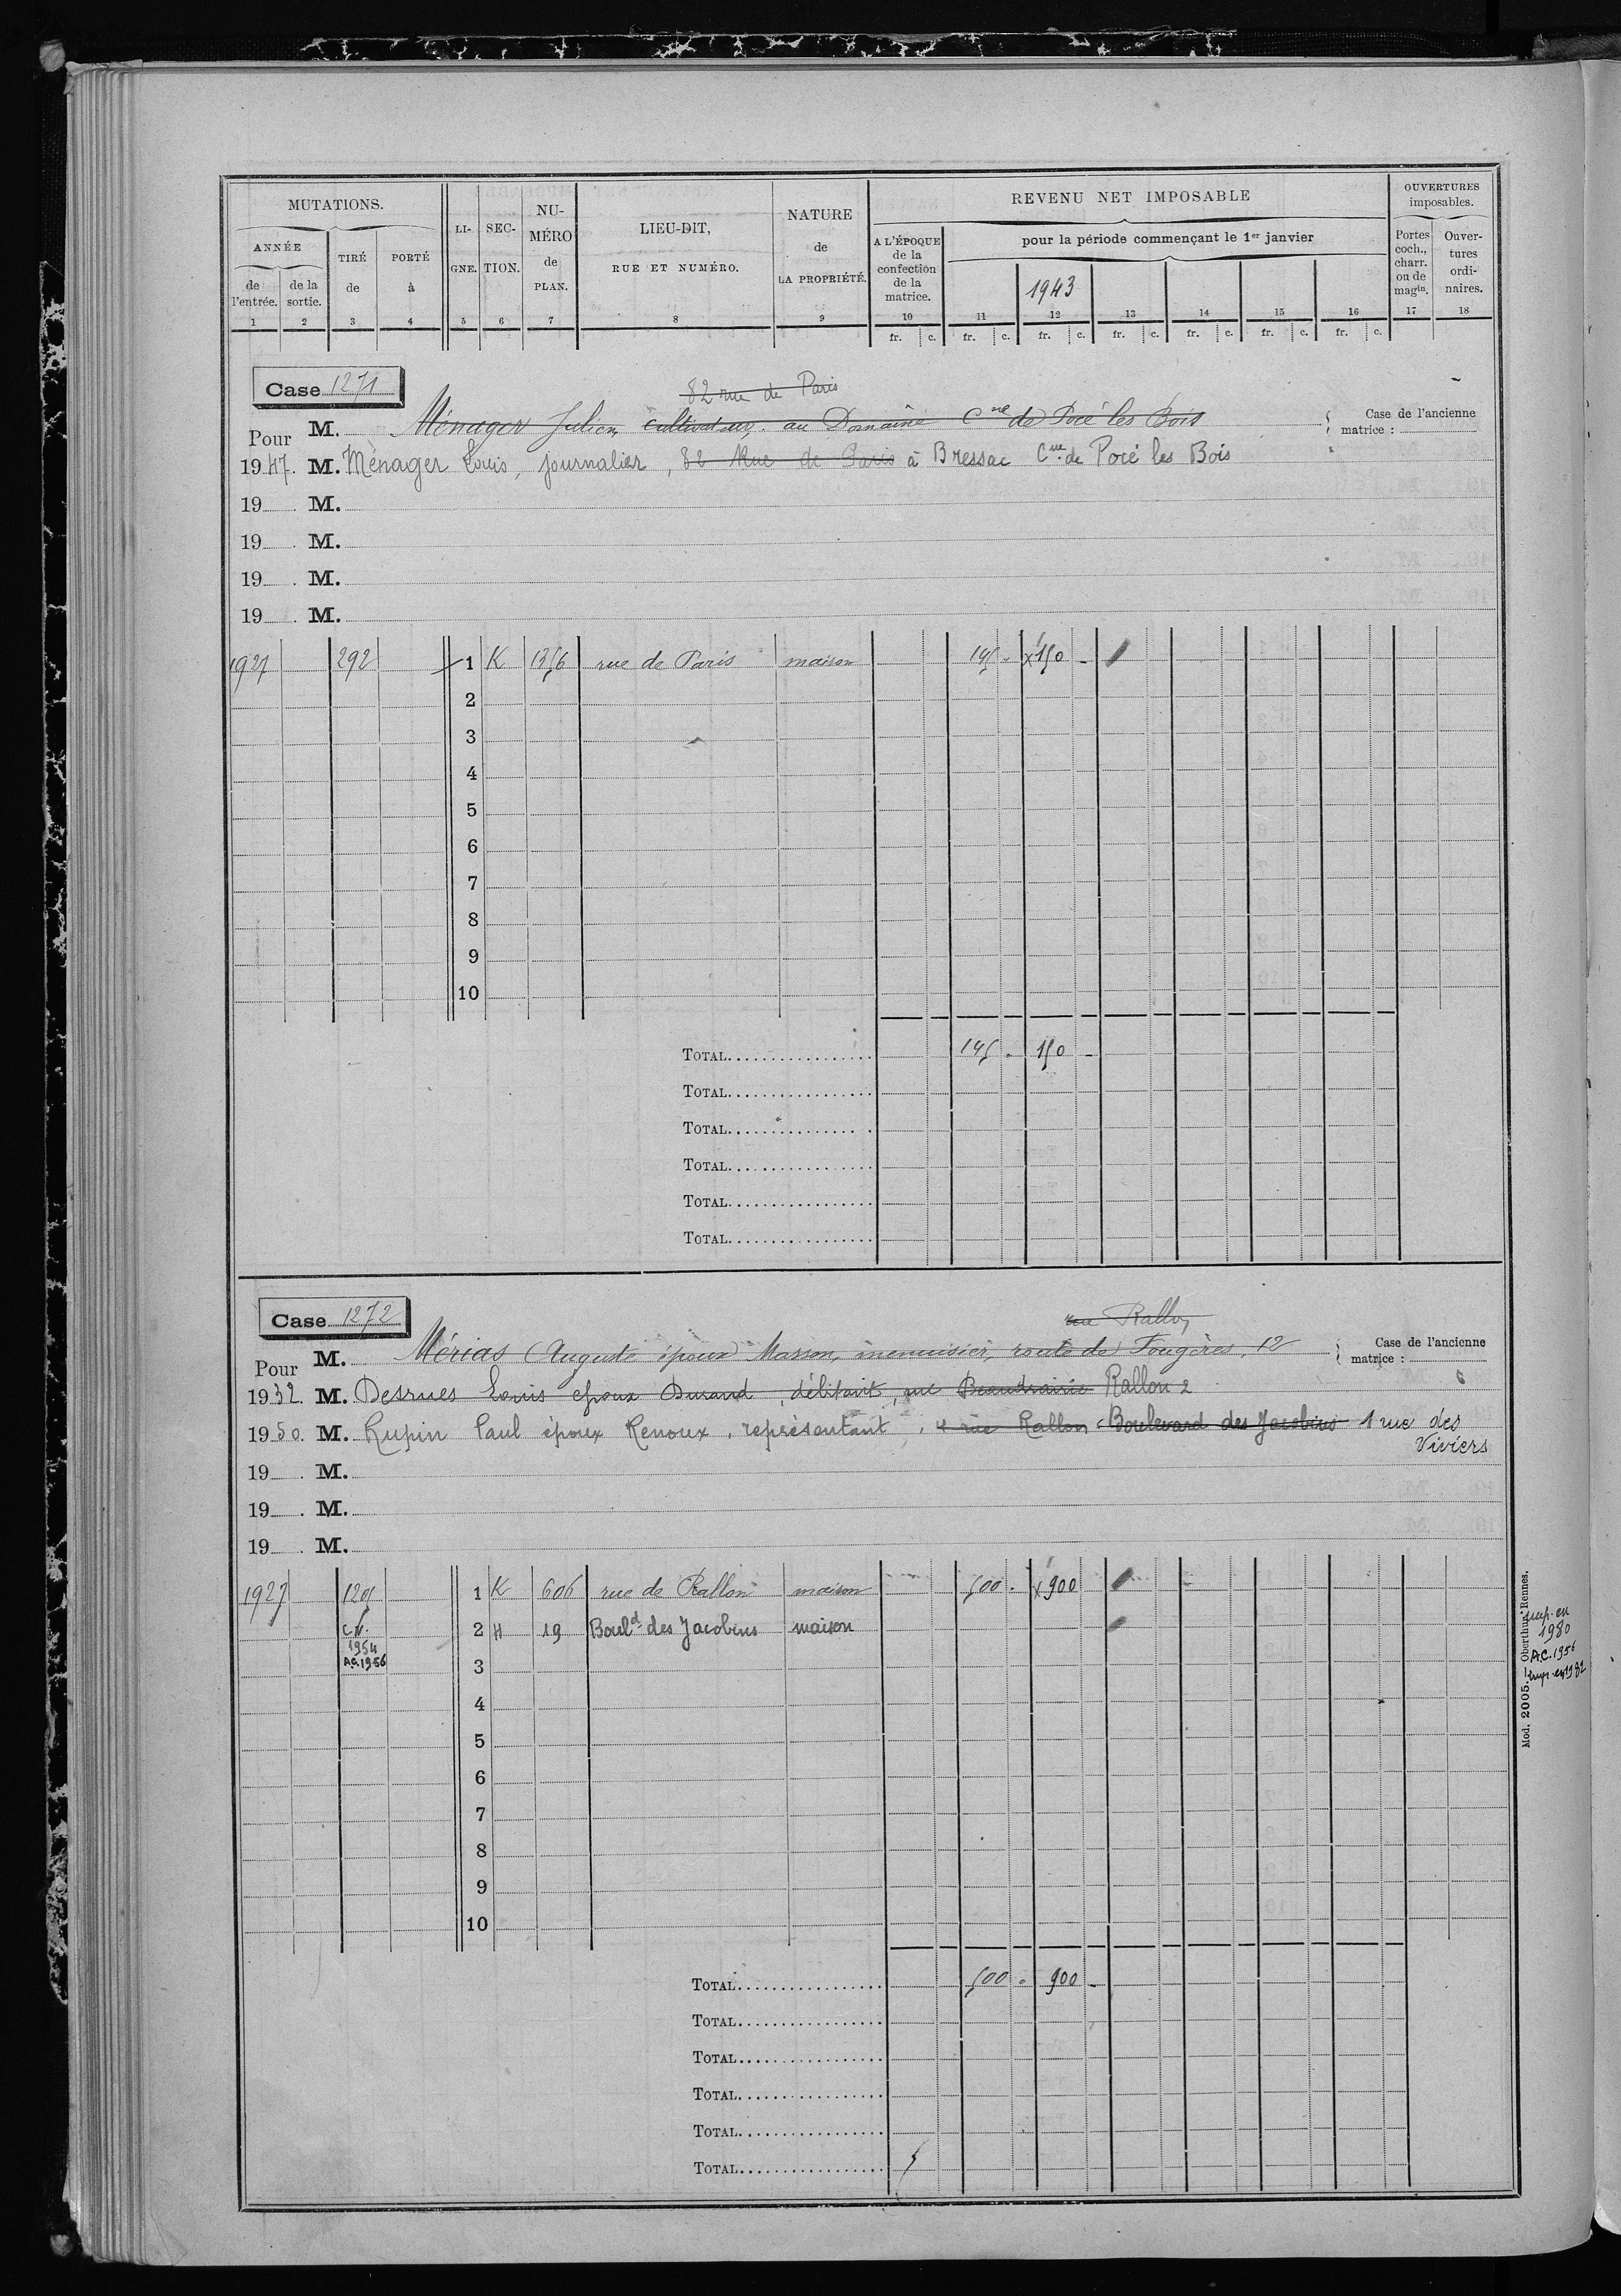 MUTATIONS. LI-GNE. SEC-TION. NU-MÉRO de PLAN. LIEU-DIT, RUE ET NUMÉRO. NATURE de LA PROPRIÉTÉ. REVENU NET IMPOSABLE OUVERTURES imposables.
ANNÉE TIRÉ de PORTÉ à A L'ÉPOQUE de la confection de la matrice. pour la période commençant le 1er janvier Portes coch., charr. ou de magin. Ouver-tures ordi-naires.
de l'entrée. de la sortie. 1943
1 2 3 4 5 6 7 8 9 10 11 12 13 14 15 16 17 18
fr. c. fr. c. fr. c. fr. c. fr. c. fr. c. fr. c.
Case 1271
82 rue de Paris
Pour M. Ménager Julien, cultivateur, au Domaine Cne de Pocé les Bois Case de l'ancienne matrice :
1947. M. Ménager Louis, journalier, 82 Rue de Paris à Bressac Cne de Pocé les Bois
19 . M.
19 . M.
19 . M.
19 . M.
1927 292 1 K 1356 rue de Paris maison 145 - x150 -
2
3
4
5
6
7
8
9
10
TOTAL 145 - 150 -
TOTAL
TOTAL
TOTAL
TOTAL
TOTAL
Case 1272
rue Rallon
Pour M. Mérias Auguste époux Masson, menuisier, route de Fougères, 12 Case de l'ancienne matrice :
1932. M. Desrues Louis époux Durand, débitant, rue Beaudrairie Rallon 2
1950. M. Rupin Paul époux Renoux, représentant, 4 rue Rallon Boulevard des Jacobins 1 rue des
Viviers
19 . M.
19 . M.
19 . M.
1927 1201 1 K 606 rue de Rallon maison 500 - x900
C.N. 2 H 19 Bould des Jacobins maison
1954
A.C. 1956 3
4
5
6
7
8
9
10
TOTAL 500 - 900 -
TOTAL
TOTAL
TOTAL
TOTAL
TOTAL
Mod. 2005. Oberthur, Rennes.
imp. en
1980
A.C. 1956
imp. en 1982